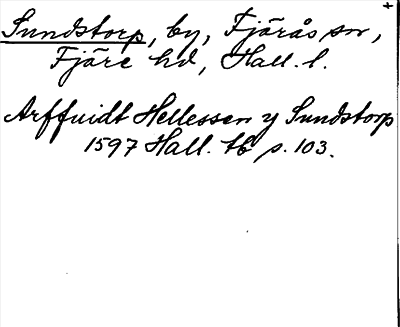 Sundstorp, by, Fjärås sn,
Fjäre hd, Hall. l.
Arffuidt Hellessen y Sundstorp
1597 Hall. tb s. 103.